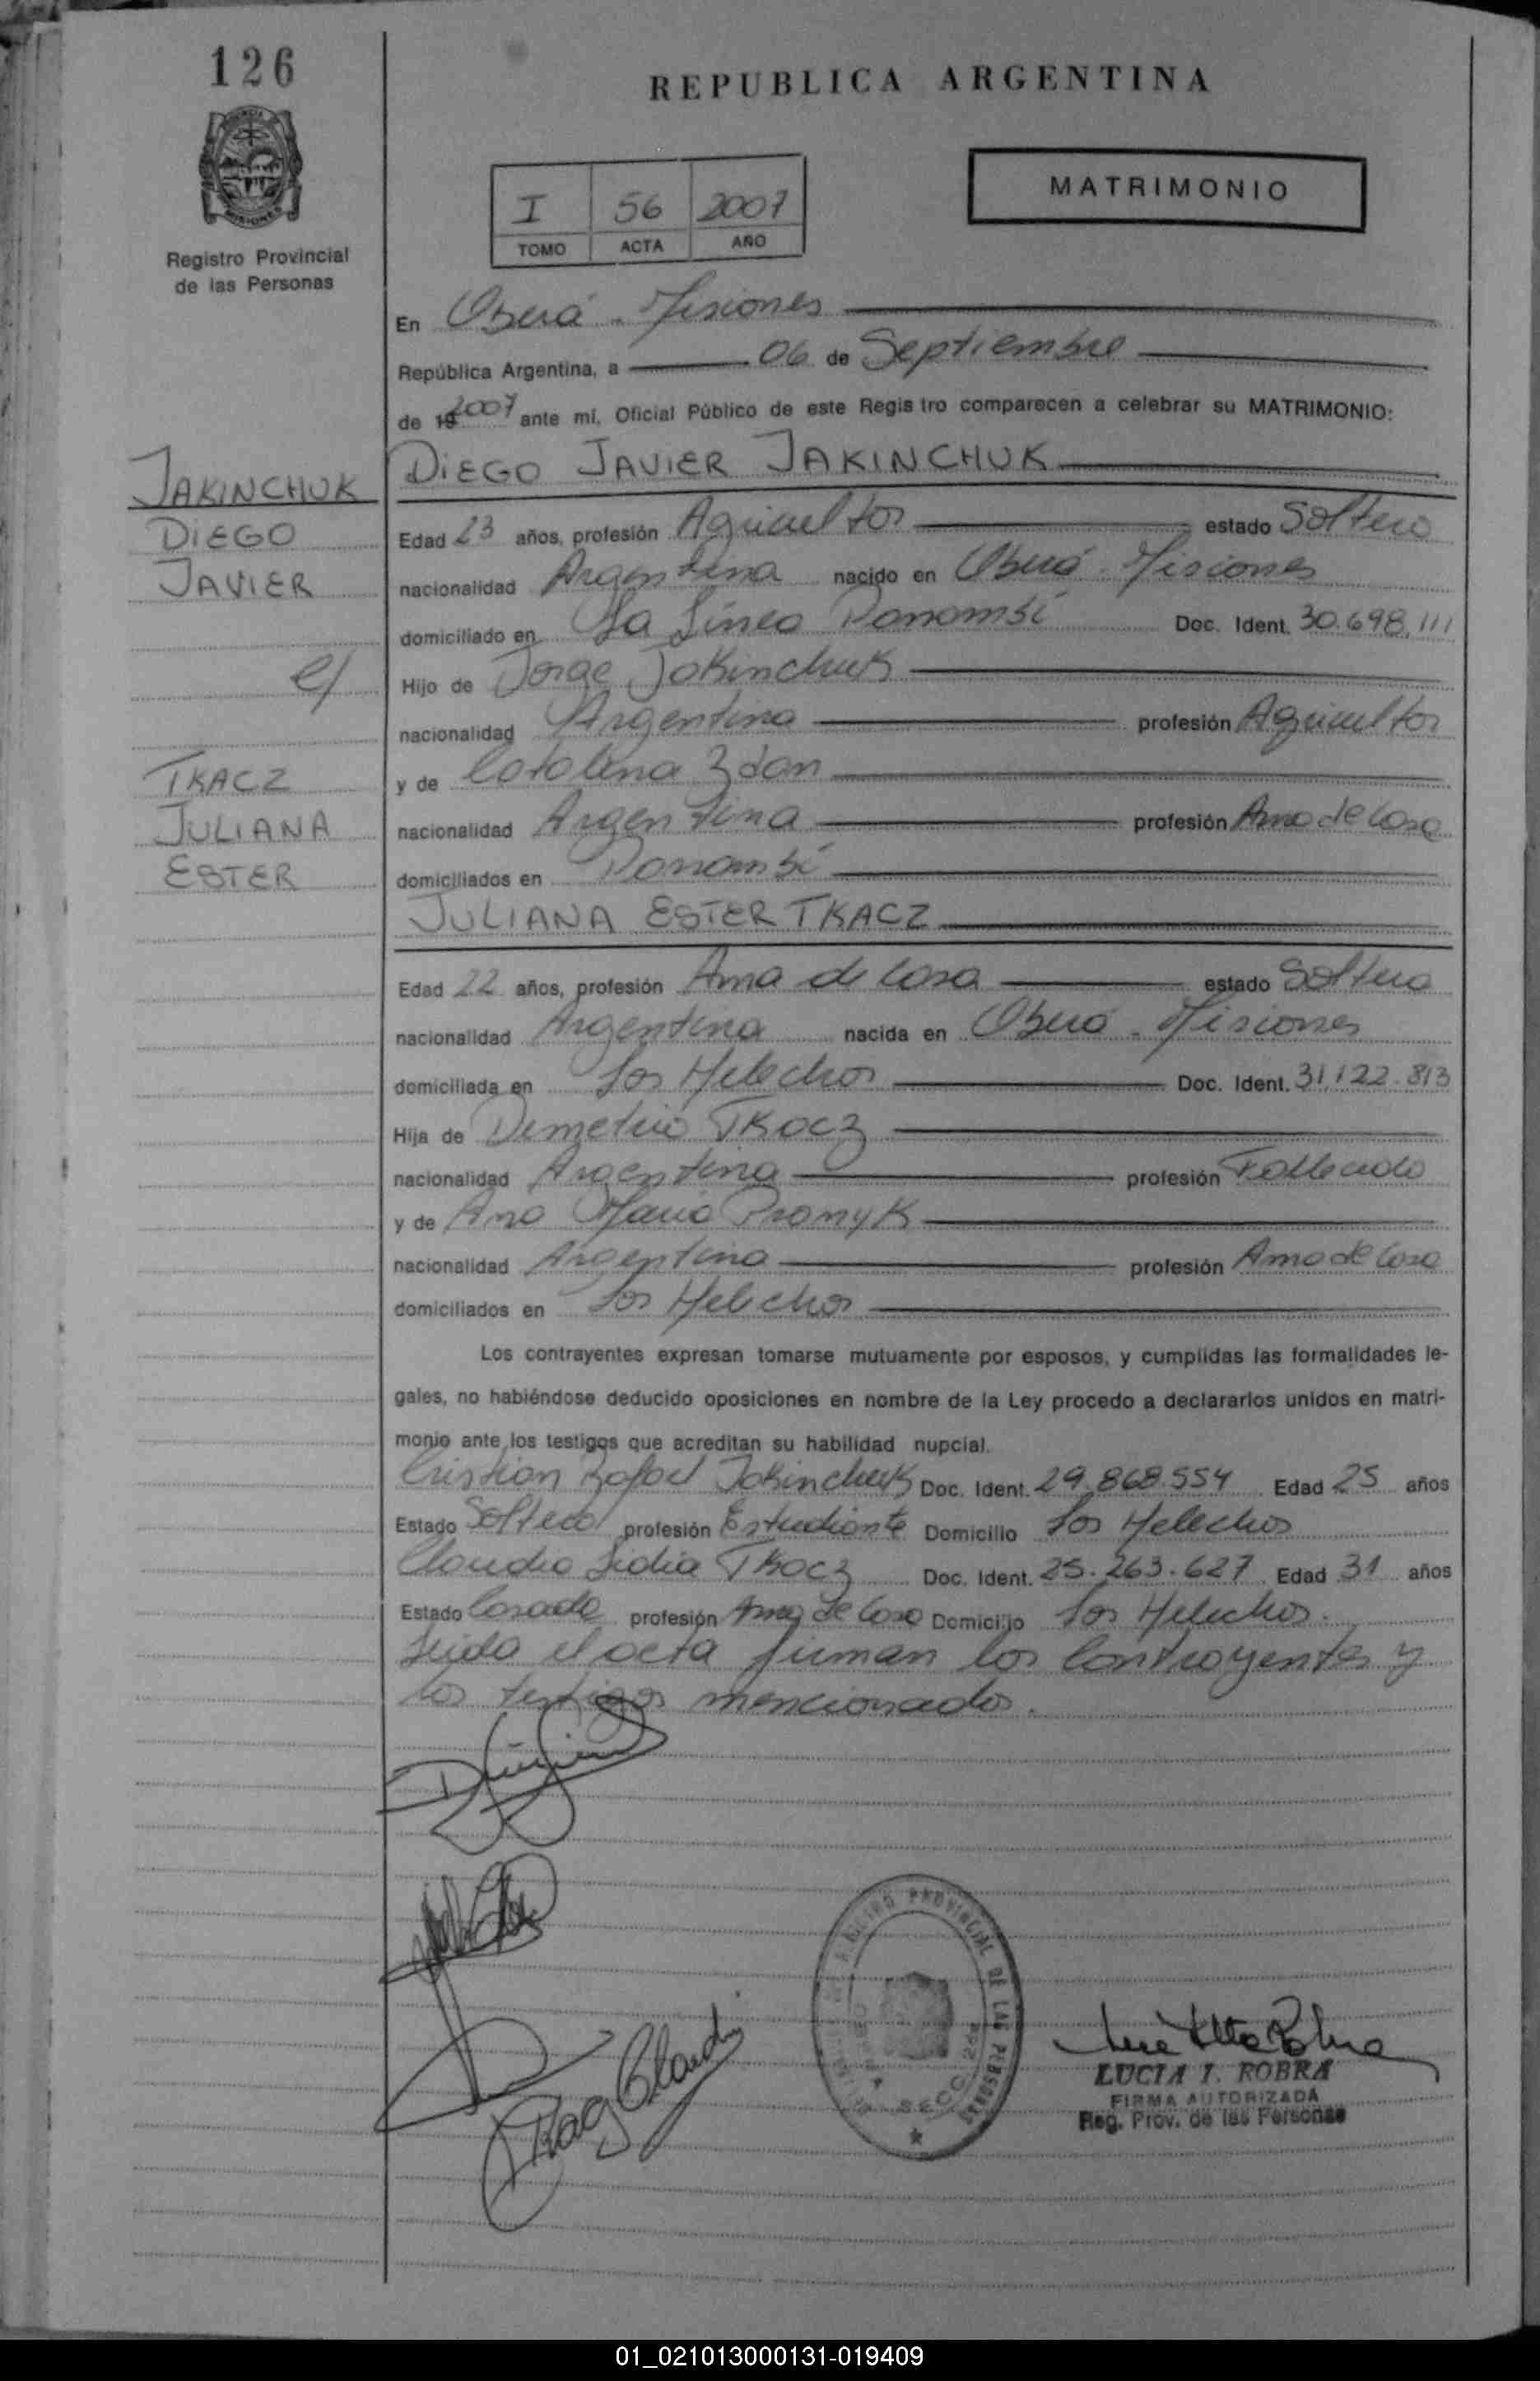 126
REPUBLICA ARGENTINA
MATRIMONIO
I 56 2007
TOMO ACTA AÑO
Registro Provincial
de las Personas
En Oberá - Misiones
República Argentina, a 06 de Septiembre
de 19 2007 ante mí, Oficial Público de este Regis tro comparecen a celebrar su MATRIMONIO:
DIEGO JAVIER JAKINCHUK
JAKINCHUK
DIEGO
JAVIER
c/
TKACZ
JULIANA
ESTER
Edad 23 años, profesión Agricultor estado Soltero
nacionalidad Argentina nacido en Oberá - Misiones
domiciliado en La Línea Panambí Doc. Ident. 30.698.111
Hijo de Jorge Jakinchuk
nacionalidad Argentina profesión Agricultor
y de Catalina Zdan
nacionalidad Argentina profesión Ama de Casa
domiciliados en Panambí
JULIANA ESTER TKACZ
Edad 22 años, profesión Ama de Casa estado Soltera
nacionalidad Argentina nacida en Oberá - Misiones
domiciliada en Los Helechos Doc. Ident. 31.122.813
Hija de Demetrio Tkacz
nacionalidad Argentina profesión Fallecido
y de Ana María Promyk
nacionalidad Argentina profesión Ama de Casa
domiciliados en Los Helechos
Los contrayentes expresan tomarse mutuamente por esposos, y cumplidas las formalidades le-
gales, no habiéndose deducido oposiciones en nombre de la Ley procedo a declararlos unidos en matri-
monio ante los testigos que acreditan su habilidad nupcial.
Cristian Rafael Jakinchuk Doc. Ident. 29.868.554 Edad 25 años
Estado Soltero profesión Estudiante Domicilio Los Helechos
Claudia Lidia Tkacz Doc. Ident. 25.263.627 Edad 31 años
Estado Casada profesión Ama de Casa Domicilio Los Helechos.
Leída el acta firman los Contrayentes y
los testigos mencionados.
REGISTRO PROVINCIAL DE LAS PERSONAS
SECC.
Tkacz Claudia
LUCIA I. ROBRA
FIRMA AUTORIZADA
Reg. Prov. de las Personas
01_021013000131-019409